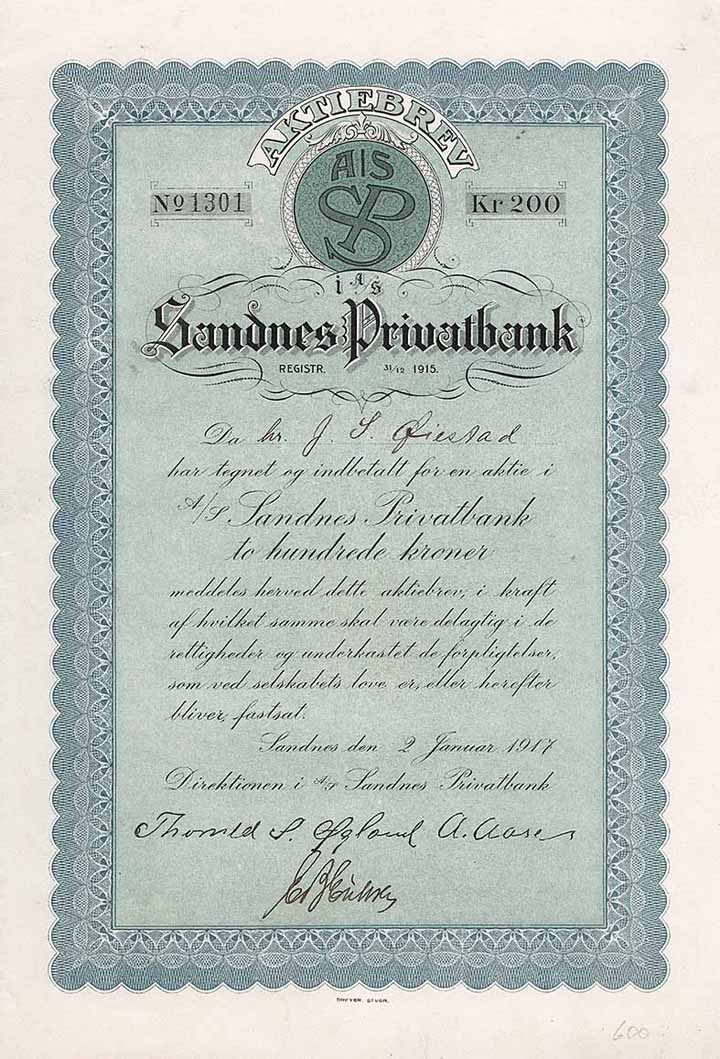 AKTIEBREV
A|S
SP
No 1301
Kr 200
i A/S
Sandnes Privatbank
REGISTR. 31/12 1915.
Da hr. J. S. Øiestad
har tegnet og indbetalt for en aktie i
A/S Sandnes Privatbank
to hundrede kroner
meddeles herved dette aktiebrev, i kraft
af hvilket samme skal være delagtig i de
rettigheder og underkastet de forpligtelser,
som ved selskabets love er, eller herefter
bliver, fastsat.
Sandnes den 2 Januar 1917
Direktionen i A/S Sandnes Privatbank
S. Øglænd A. Aase
600